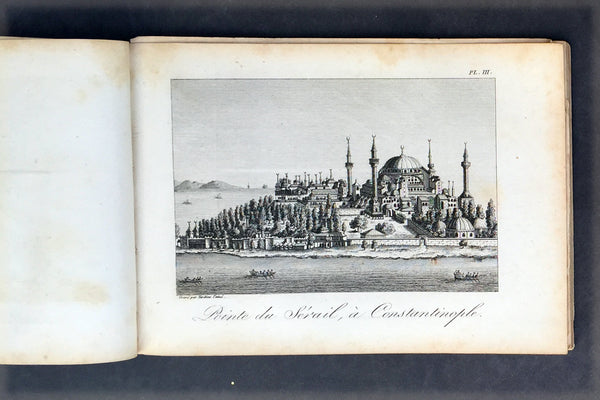 PL. III.
Gravé par
Pointe du Sérail, à Constantinople.